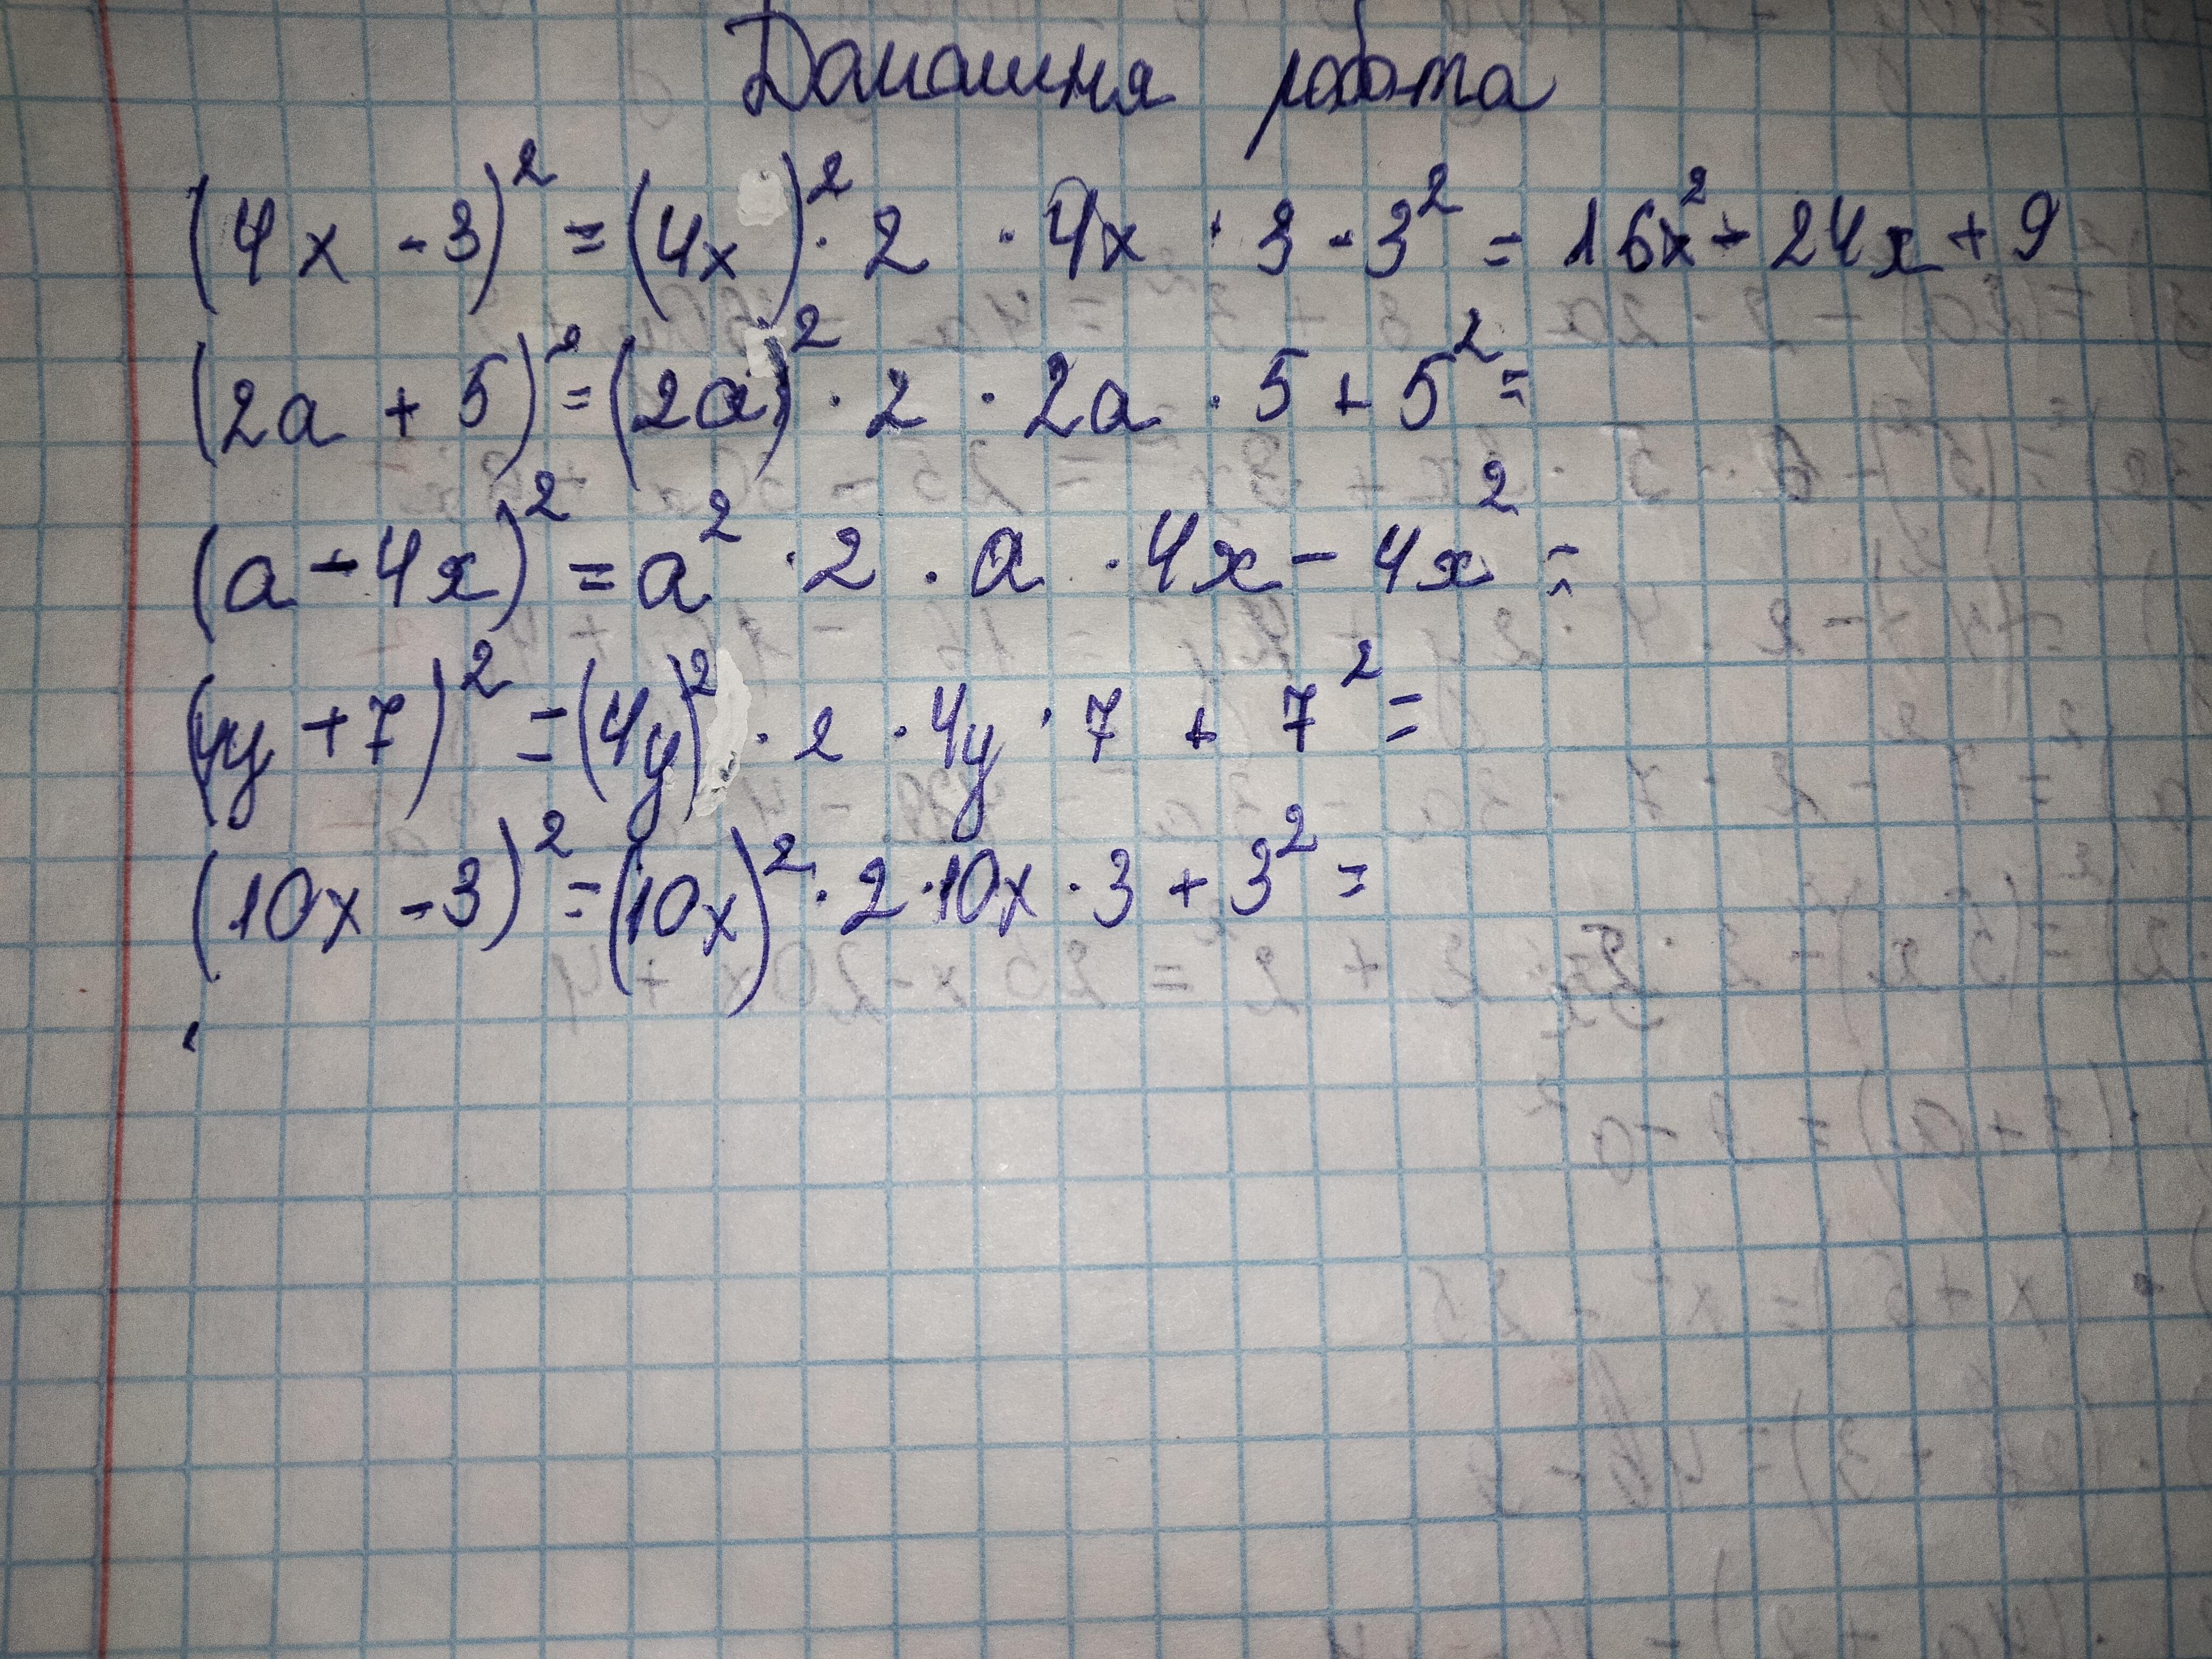 Домашня робота
(4x - 3)² = (4x)² · 2 · 4x · 3 - 3² = 16x² - 24x + 9
(2a + 5)² = (2a)² · 2 · 2a · 5 + 5² =
(a - 4x)² = a² · 2 · a · 4x - 4x² =
(4y + 7)² = (4y)² · 2 · 4y · 7 + 7² =
(10x - 3)² = (10x)² · 2 · 10x · 3 + 3² =